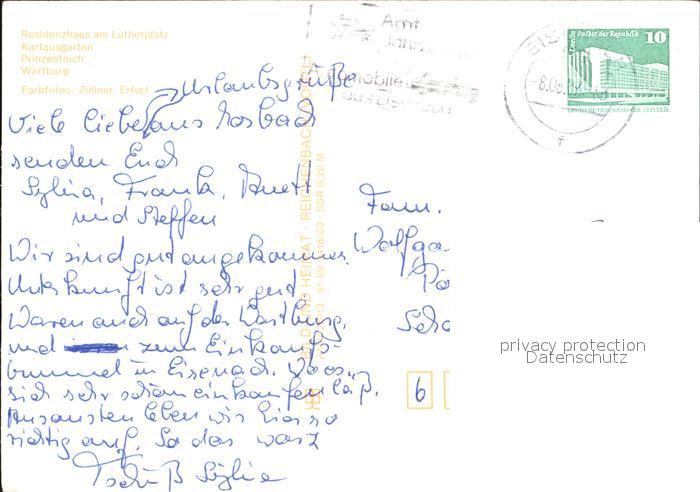 Residenzhaus am Lutherplatz
Kartausgarten
Prinzenteich
Wartburg
Farbfotos: Zöllner, Erfurt
Amt
Jahre
mobile
aus Eisenach
EIS
-8.08.
Palast der Republik
10
DEUTSCHE DEMOKRATISCHE REPUBLIK
BILD UND HEIMAT · REICHENBACH (VOGTL)
01 09 DDR 0,20 M
Urlaubsgrüße
Viele liebe aus Mosbach
senden Euch
Sylvia, Frank, Anett
und Steffen
Wir sind gut angekommen.
Unterkunft ist sehr gut.
Waren auch auf der Wartburg,
und zum Einkaufs-
bummel in Eisenach. Wo es
sich sehr schön einkaufen läßt.
Ansonsten leben wir hier so
richtig auf. So das war's
Tschüß Sylvia
Fam.
Wolfga
6
privacy protection
Datenschutz